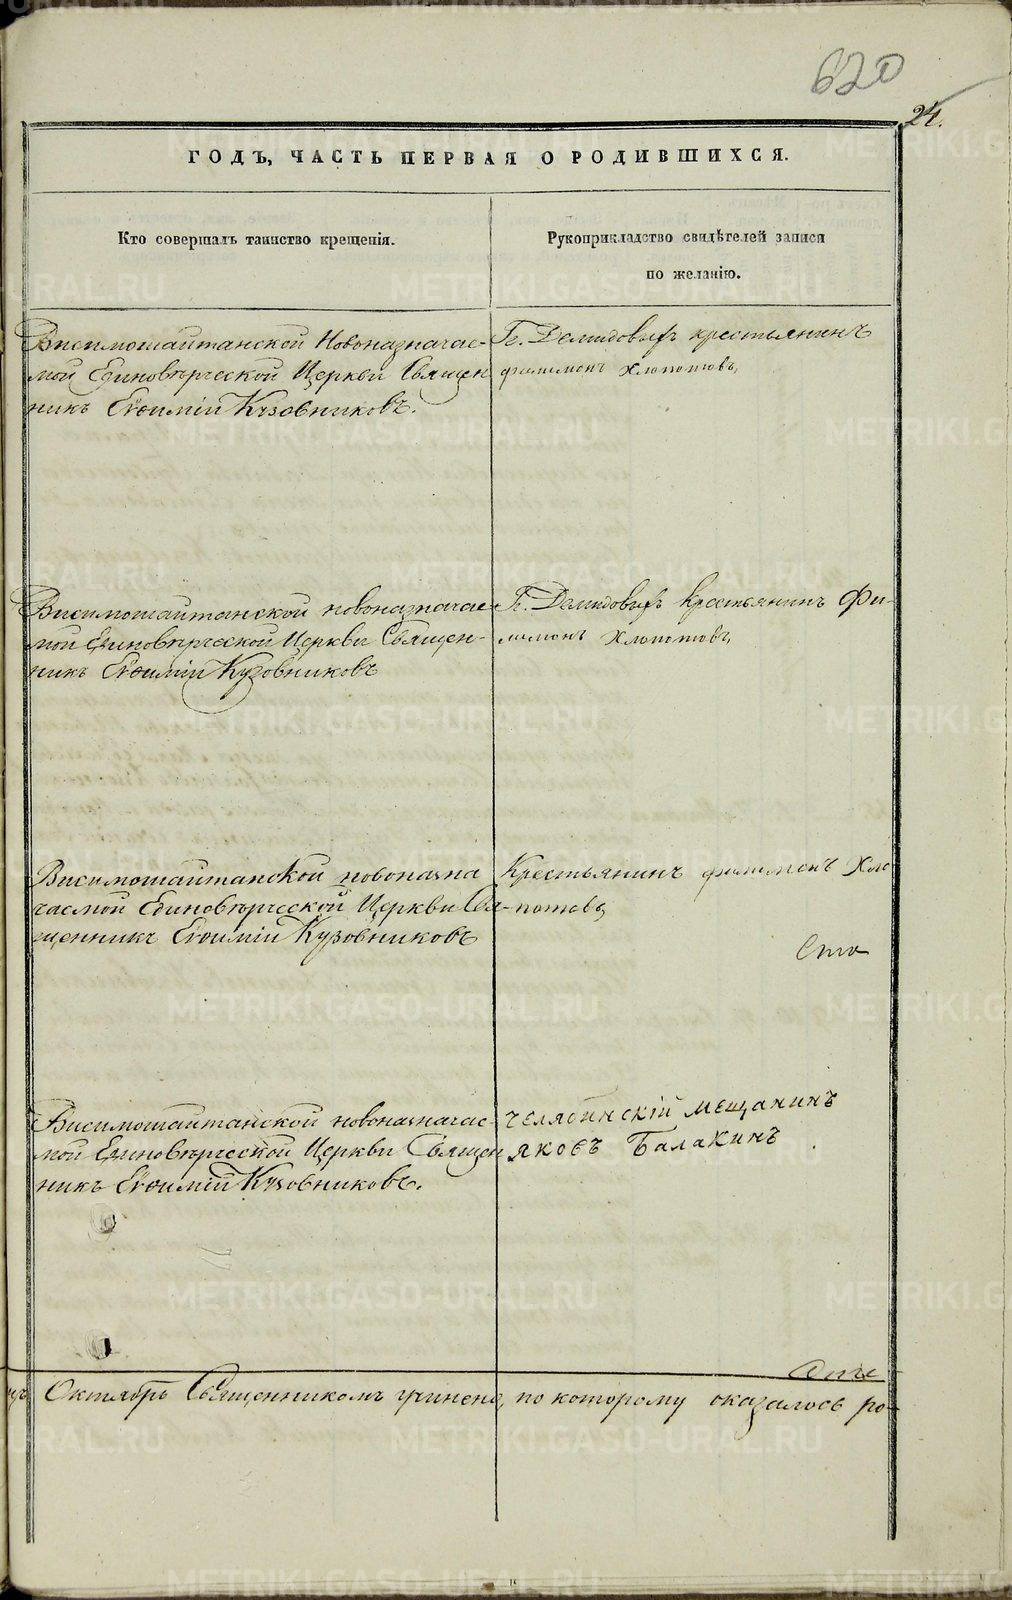 620
24.
ГОДЪ, ЧАСТЬ ПЕРВАЯ О РОДИВШИХСЯ.
Кто совершалъ таинство крещенія.
Рукоприкладство свидѣтелей записи
по желанію.
Висимошайтанской Новоназначае-
мой Единовѣрческой Церкви Священ
никъ Евѳимій Кузовниковъ.
Гг. Демидовыхъ крестьянинъ
филимонъ Хлопотовъ
Висимошайтанской новоназначае-
мой Единовѣрческой Церкви Священ-
никъ Евѳимій Кузовниковъ
Гг. Демидовыхъ Крестьянинъ Фи-
лимонъ Хлопотовъ
Висимошайтанской новоназна
чаемой Единовѣрческой Церкви Свя-
щенникъ Евѳимій Кузовниковъ
Крестьянинъ филимонъ Хло
потовъ
Висимошайтанской новоназначае-
мой Единовѣрческой Церкви Священ
никъ Евѳимій Кузовниковъ.
челябинскій мещанинъ
яковъ Балакинъ
Октябрь Священникомъ учинено, по которому оказалось ро-
METRIKI.GASO-URAL.RU